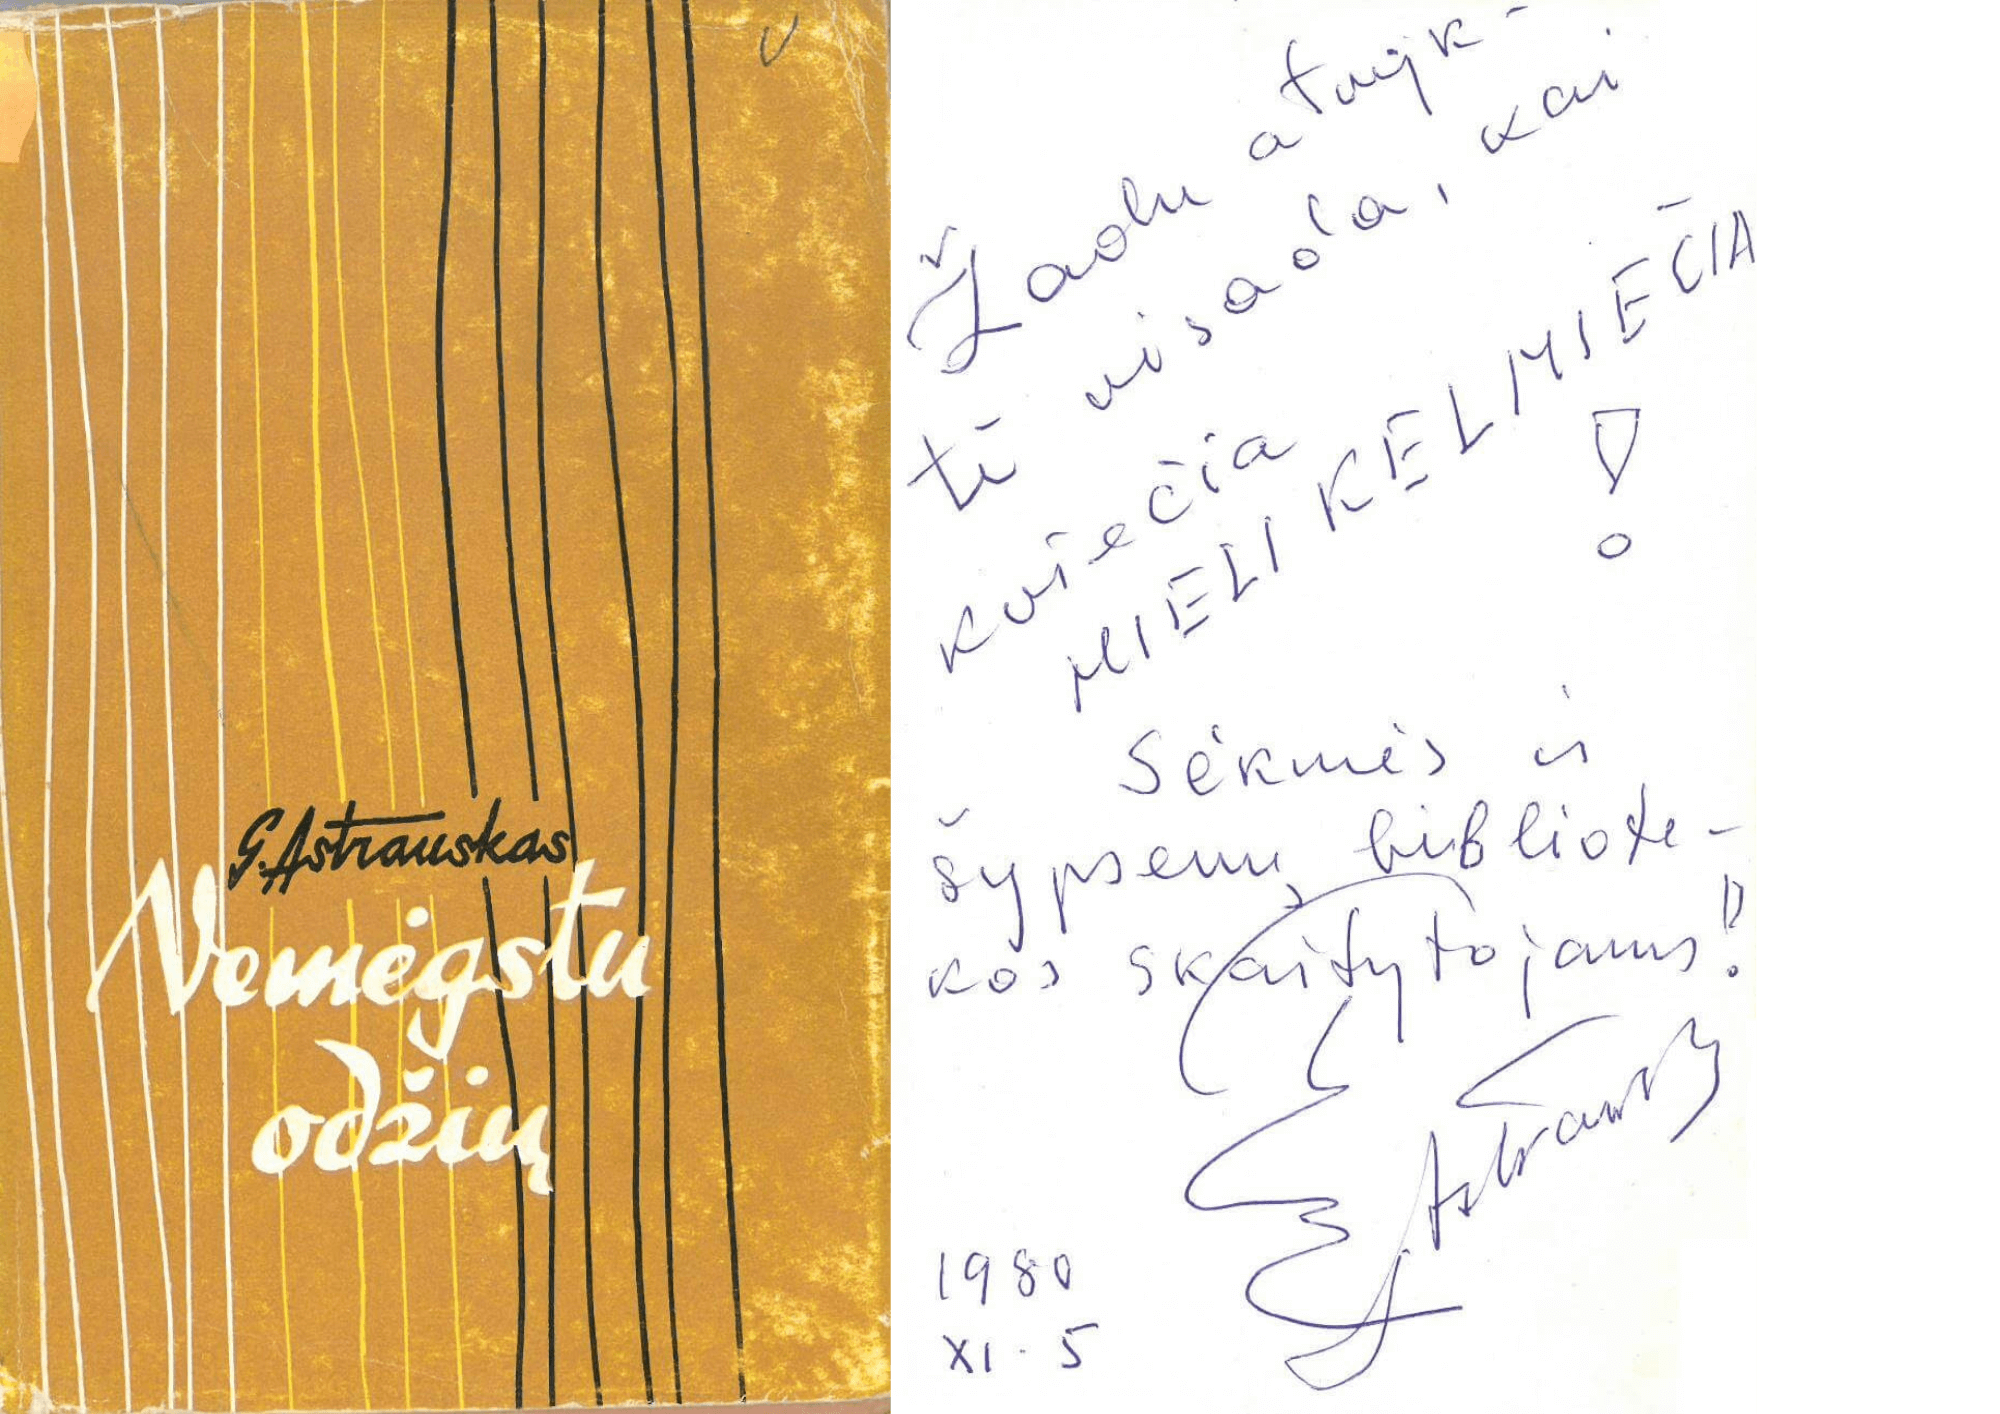 G. Astrauskas
Nemėgstu
odžių
Žadu atvyk-
ti visada, kai
kviečia
MIELI KELMIEČIA
!
Sėkmės ir
šypsenų bibliote-
kos skaitytojams!
G. Astrauskas
1980
XI. 5